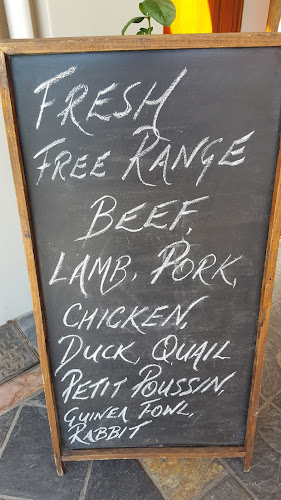 FRESH
FREE RANGE
BEEF,
LAMB, PORK,
CHICKEN,
DUCK, QUAIL
PETIT POUSSIN,
GUINEA FOWL,
RABBIT